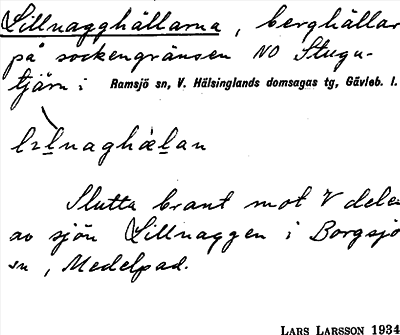 Lillnagghällarna, berghällar
på sockengränsen NO Stugu-
tjärn i Ramsjö sn, V. Hälsinglands domsagas tg, Gävleb. l.
Slutta brant mot V delen
av sjön Lillnaggen i Borgsjö
sn, Medelpad.
LARS LARSSON 1934